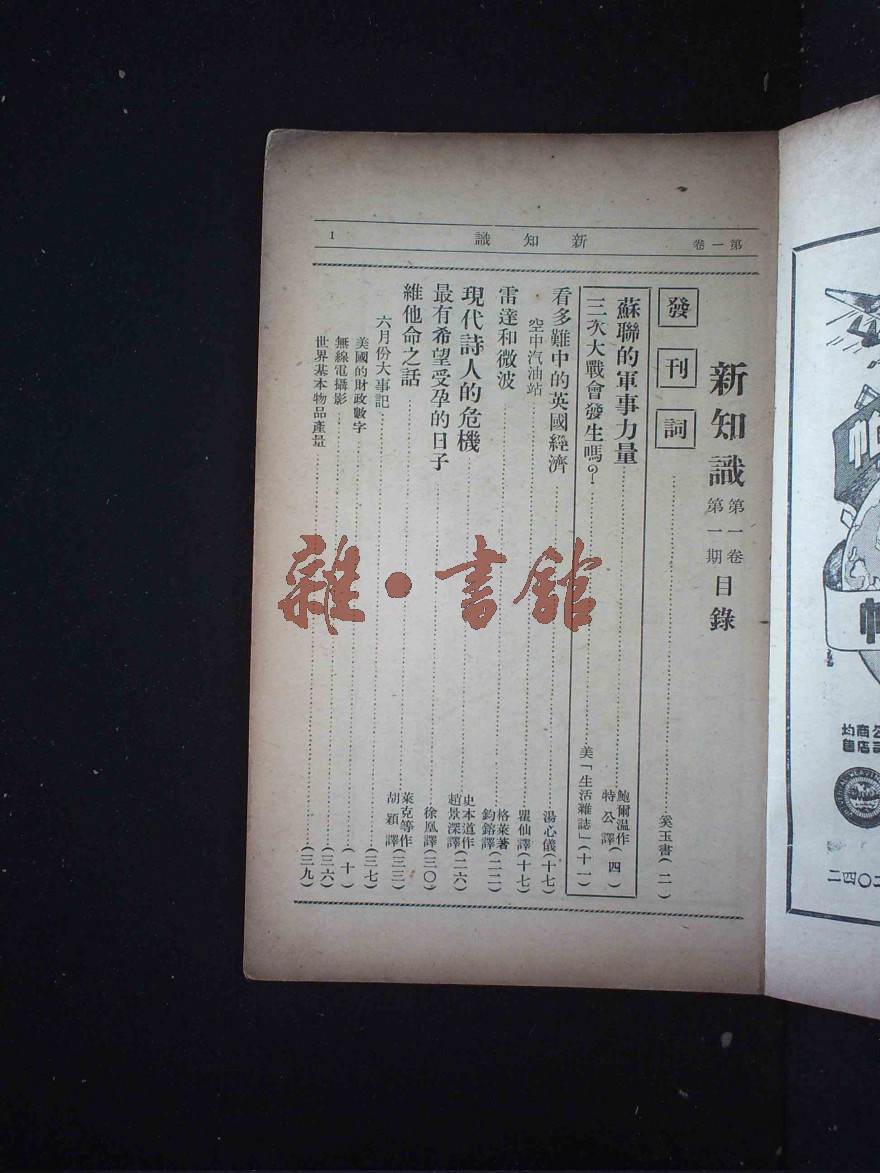 第一卷
新知識
1
新知識 第一卷 第一期 目錄
發刊詞 奚玉書(二)
蘇聯的軍事力量 鮑爾温作 特公譯(四)
三次大戰會發生嗎? 美「生活雜誌」(十一)
看多難中的英國經濟 湯心儀(十七)
空中汽油站 瞿仙譯(十七)
雷達和微波 格萊著 鈞鎔譯(二二)
現代詩人的危機 史本道作 趙景深譯(二六)
最有希望受孕的日子 徐凰譯(三〇)
維他命之話 萊克等作 胡穎譯(三三)
六月份大事記 (三七)
美國的財政數字 (十)
無線電攝影 (三六)
世界基本物品產量 (三九)
雜·書館
二四〇二